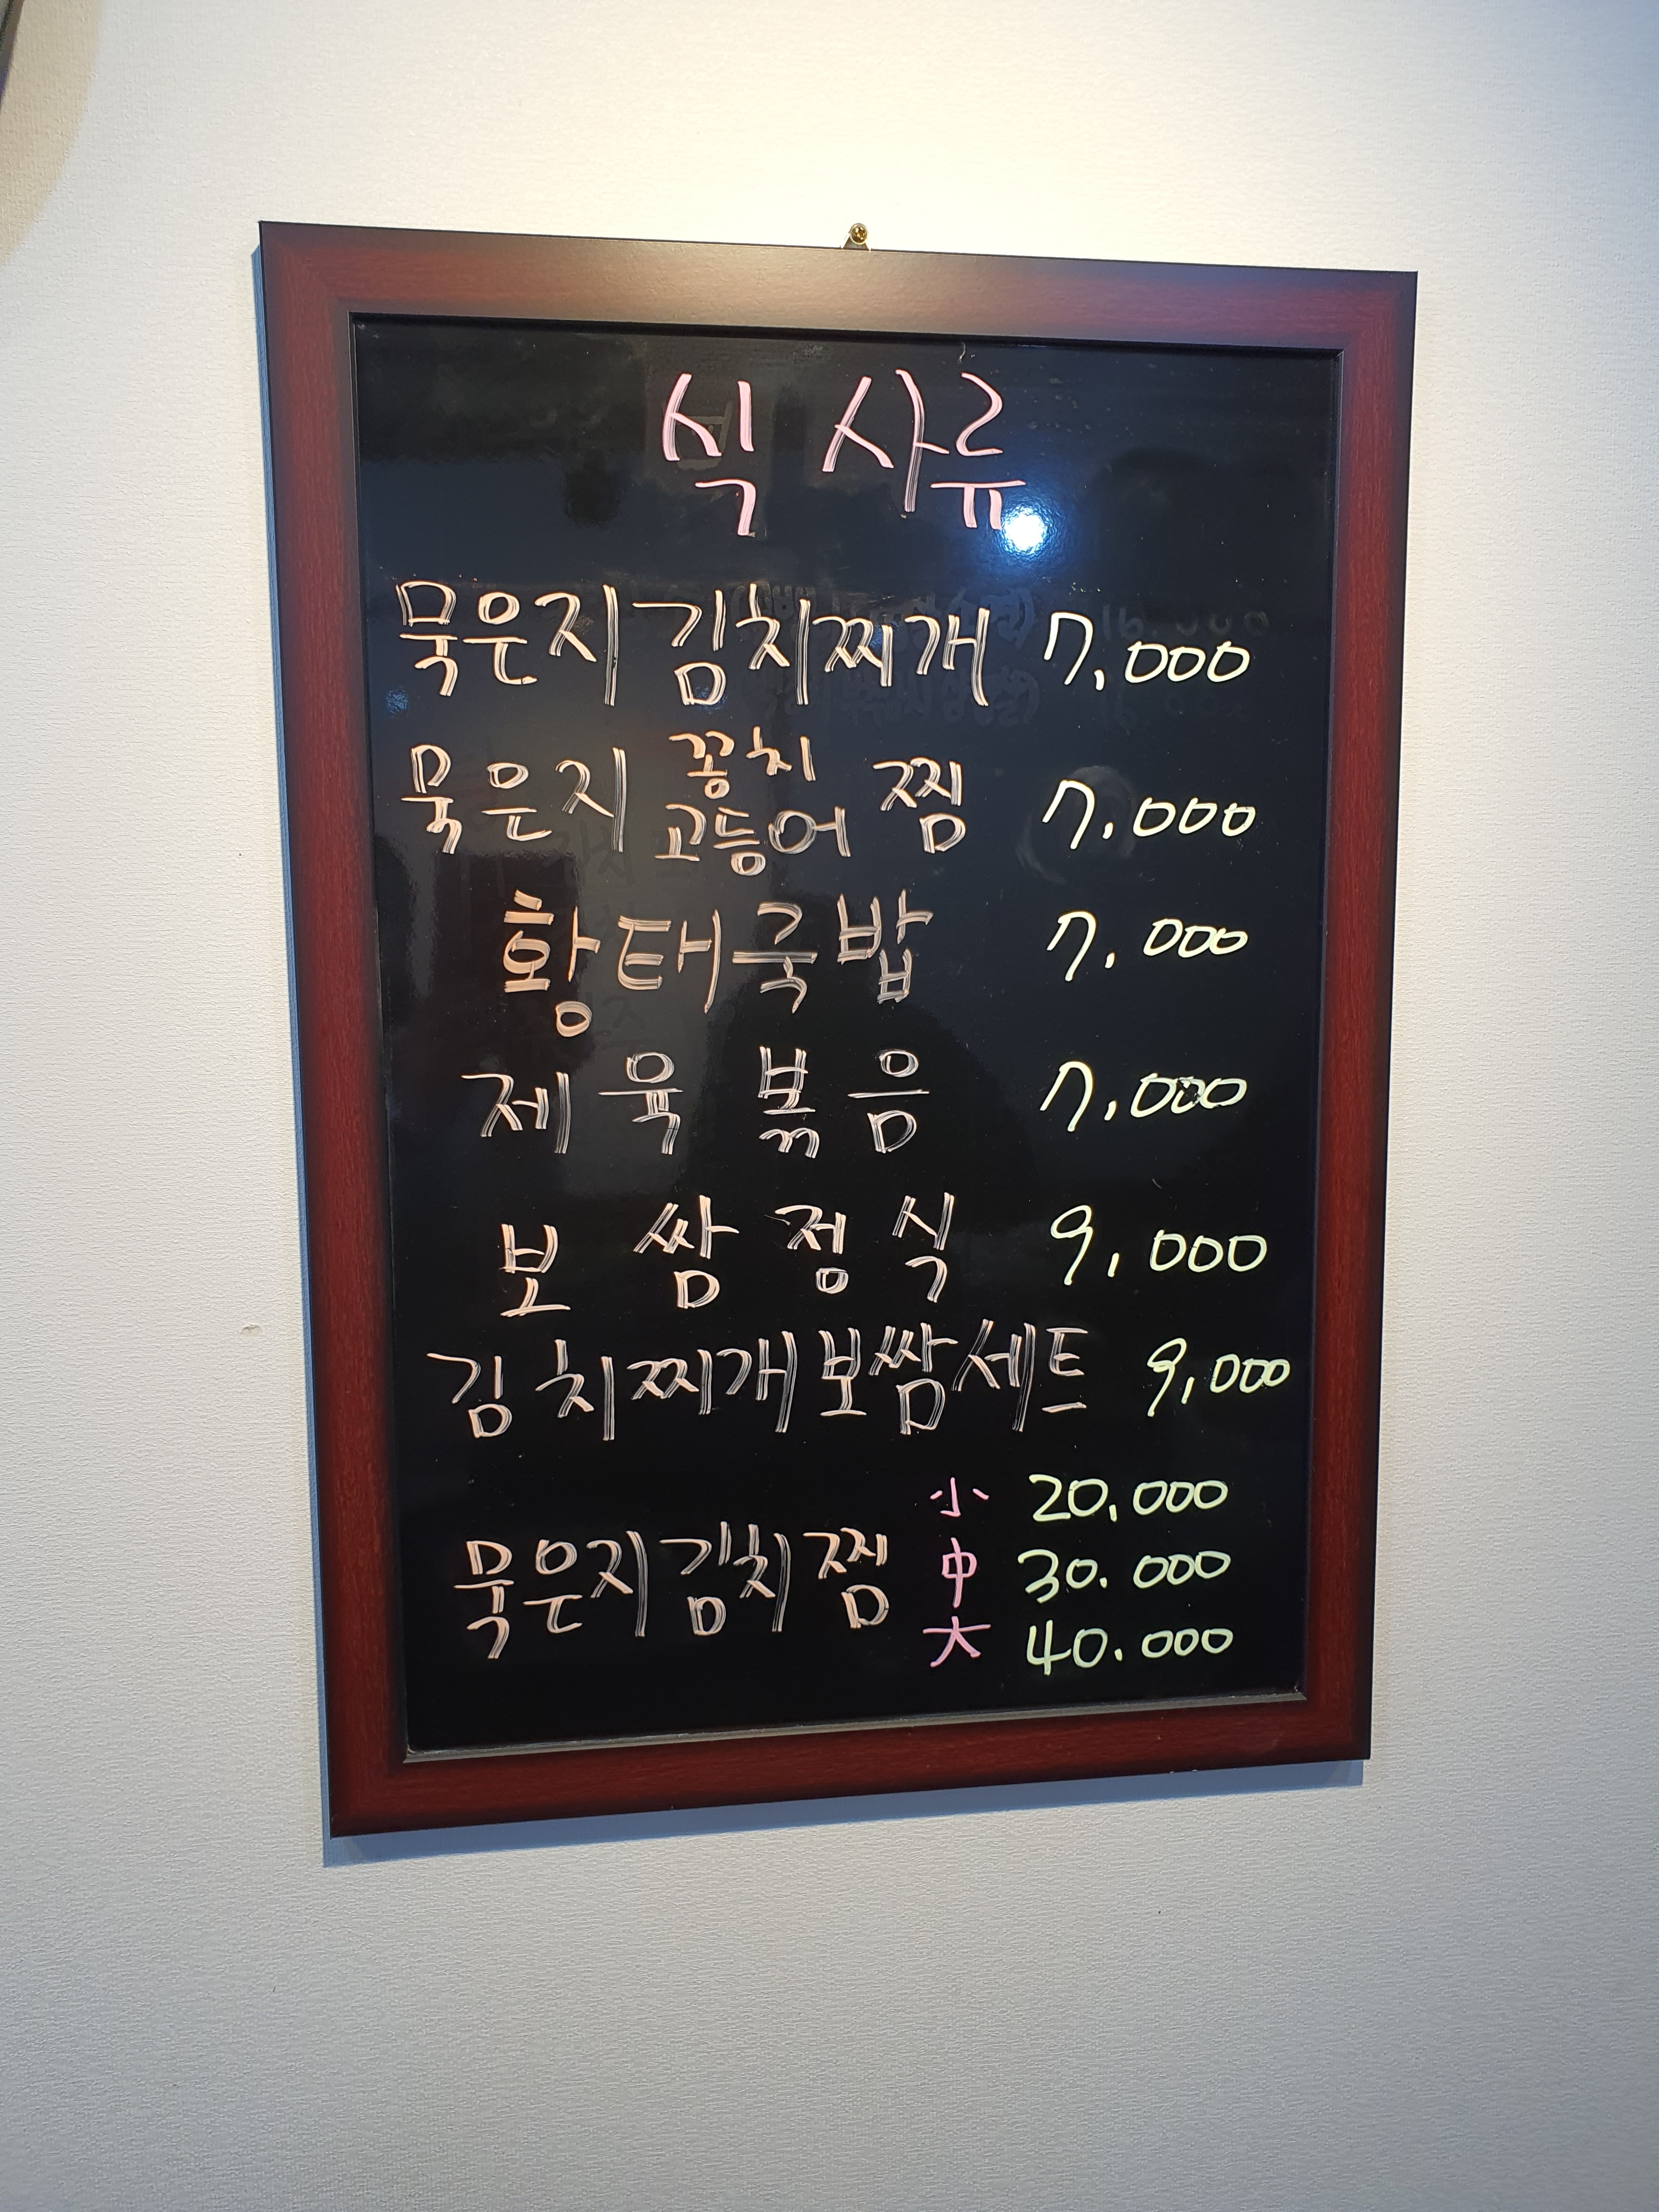 식사류
묵은지 김치찌개 7,000
묵은지 꽁치 고등어 찜 7,000
황태국밥 7.000
제육볶음 7,000
보쌈정식 9,000
김치찌개보쌈세트 9,000
묵은지김치찜 小 20,000
中 30.000
大 40.000